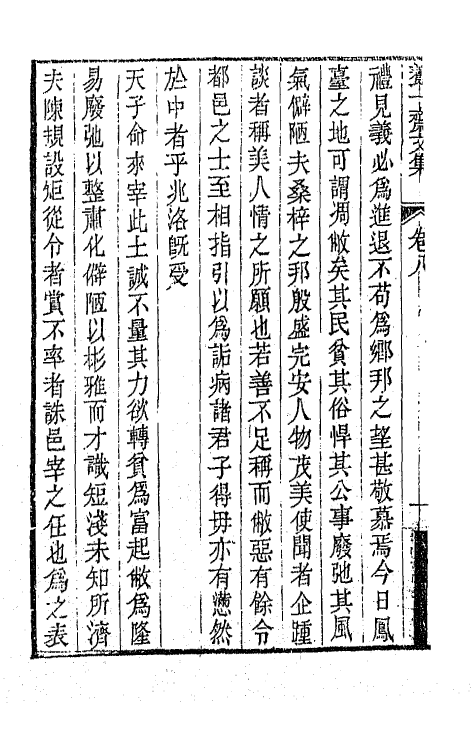 養一齋文集
卷八
禮見義必爲進退不苟爲鄉邦之望甚敬慕焉今日鳳
臺之地可謂凋敝矣其民貧其俗悍其公事廢弛其風
氣僻陋夫桑梓之邦殷盛完安人物茂美使聞者企踵
談者稱美人情之所願也若善不足稱而敝惡有餘令
都邑之士至相指引以爲詬病諸君子得毋亦有憊然
於中者乎兆洛旣受
天子命來宰此土誠不量其力欲轉貧爲富起敝爲隆
易廢弛以整肅化僻陋以彬雅而才識短淺未知所濟
夫陳規設矩從令者賞不率者誅邑宰之任也爲之表